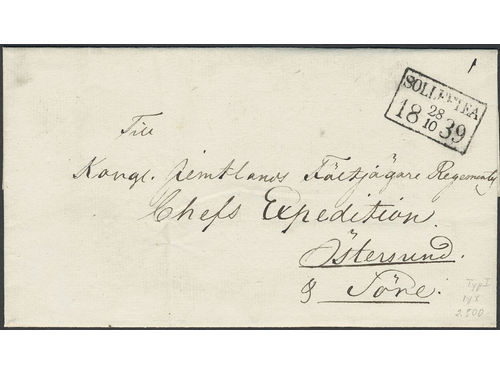 SOLLEFTEA
18 28/10 39
Till
Kongl. Jemtlands Fältjägare Regements
Chefs Expedition.
Östersund.
& Töne.
Typ I
2.500